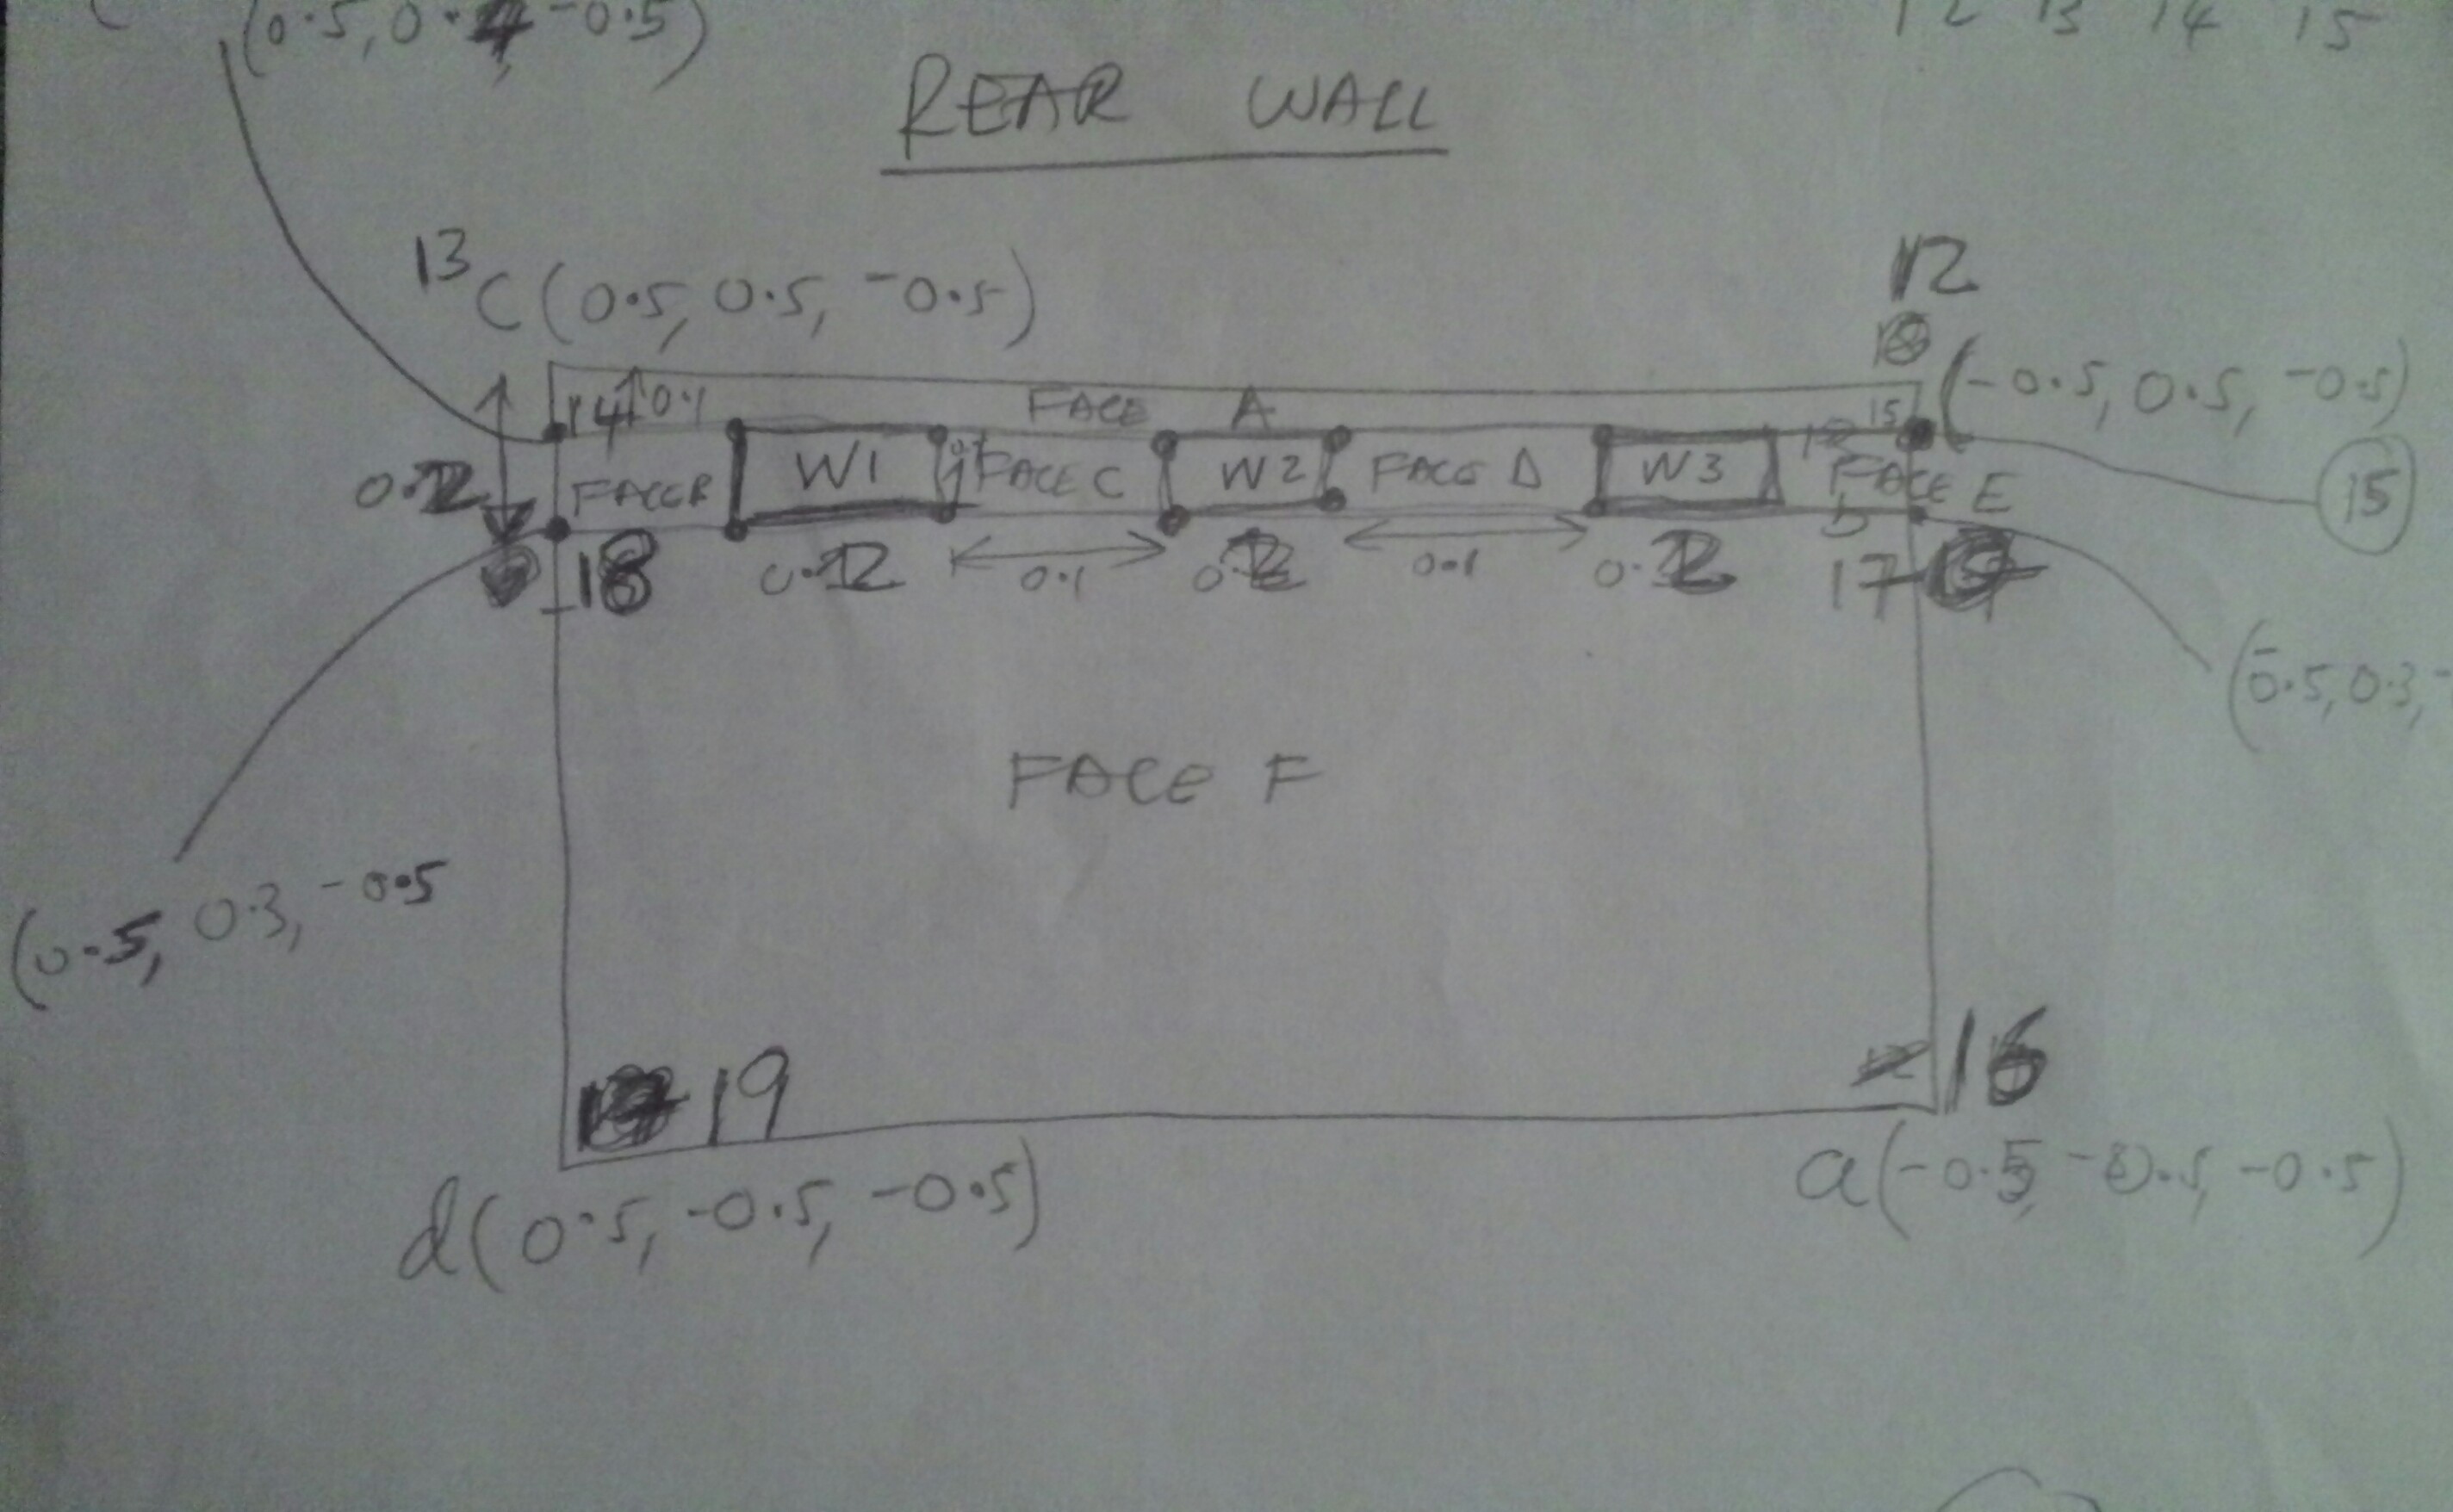 (0.5, 0.4, -0.5)
12 13 14 15
REAR WALL
13
C (0.5, 0.5, -0.5)
12
(-0.5, 0.5, -0.5)
14 0.1
FACE A
15
W1
FACE C
W2
FACE D
W3
FACE E
15
0.2
FACE B
18
0.2
0.1
0.2
0.1
0.2
17
(-0.5, 0.3, -
FACE F
(0.5, 0.3, -0.5
19
16
d(0.5, -0.5, -0.5)
a(-0.5, -0.5, -0.5)